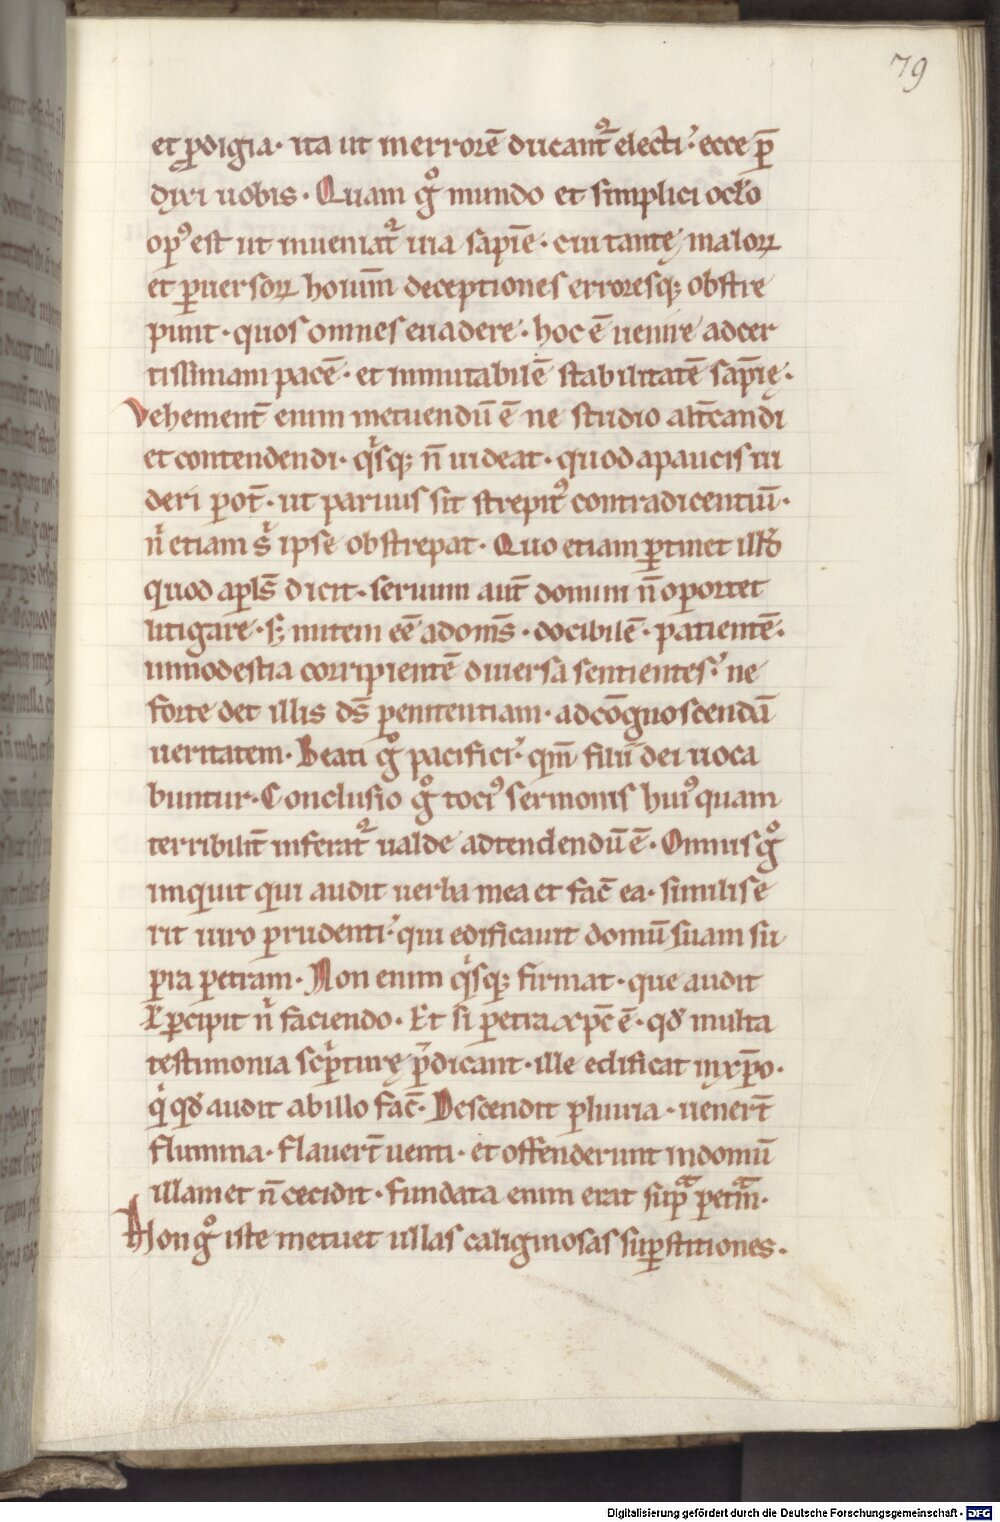 79
et ꝓdigia· ita ut in errorē ducant᷑ electi· ecce p̄
dixi uobis· Quam gͦ mundo et simplici oclo
opꝰ est ut inueniat᷑ uia sapīe· cui tantę maloꝝ
et ꝑuersoꝝ hoium̄ deceptiones erroresq; obstre
punt· quos omnes euadere· hoc ē uenire ad cer
tissimam pacē· et inmutabilē stabilitatē sapīę·
Vehement̄ enim metuendū ē ne studio alt̄candi
et contendendi· qͥsq; n̄ uideat· quod a paucis ui
deri pot̄· ut paruus sit strepitꝰ contradicentiū·
nͥ etiam sͥ ipse obstrepat· Quo etiam ꝑtinet illđ
quod apls̄ dicit· seruum aut̄ domini n̄ oportet
litigare· sꝫ mitem eē ad om̄s· docibilē· patientē·
in modestia corripientē diuersa sentientes· ne
forte det illis ds̄ penitentiam· ad cōgnoscendā
ueritatem· Beati gͦ pacifici· qm̄ filii dei uoca
buntur· Conclusio gͦ tociꝰ sermonis huiꝰ quam
terribilit̄ inferat᷑ ualde adtendendū ē· Omnis gͦ
inquit qui audit uerba mea et fac̄ ea· similis e
rit uiro prudenti· qui edificauit domū suam su
pra petram· Non enim qͥsq; firmat· que audit
ł ꝑcipit nͥ faciendo· Et si petra xp̄c ē· qđ multa
testimonia scͥpturę p̄dicant· ille edificat in xp̄o·
qͥ qđ audit ab illo fac̄· Descendit pluuia· uenert̄
flumina· flauert̄ uenti· et offenderunt in domū
illam et n̄ cecidit· fundata enim erat supͣ petͣm·
Non gͦ iste metuet ullas caliginosas suꝑstitiones·
Digitalisierung gefördert durch die Deutsche Forschungsgemeinschaft - DFG